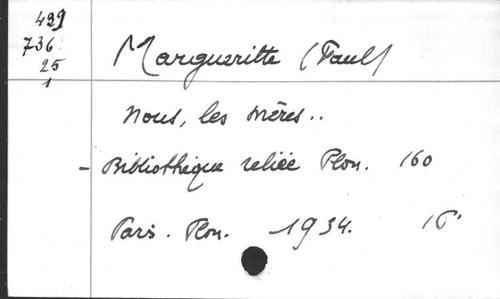 499
736
25
1
Margueritte (Paul)
Nous, les mères..
- Bibliothèque reliée Plon. 160
Paris. Plon. 1934. 16°